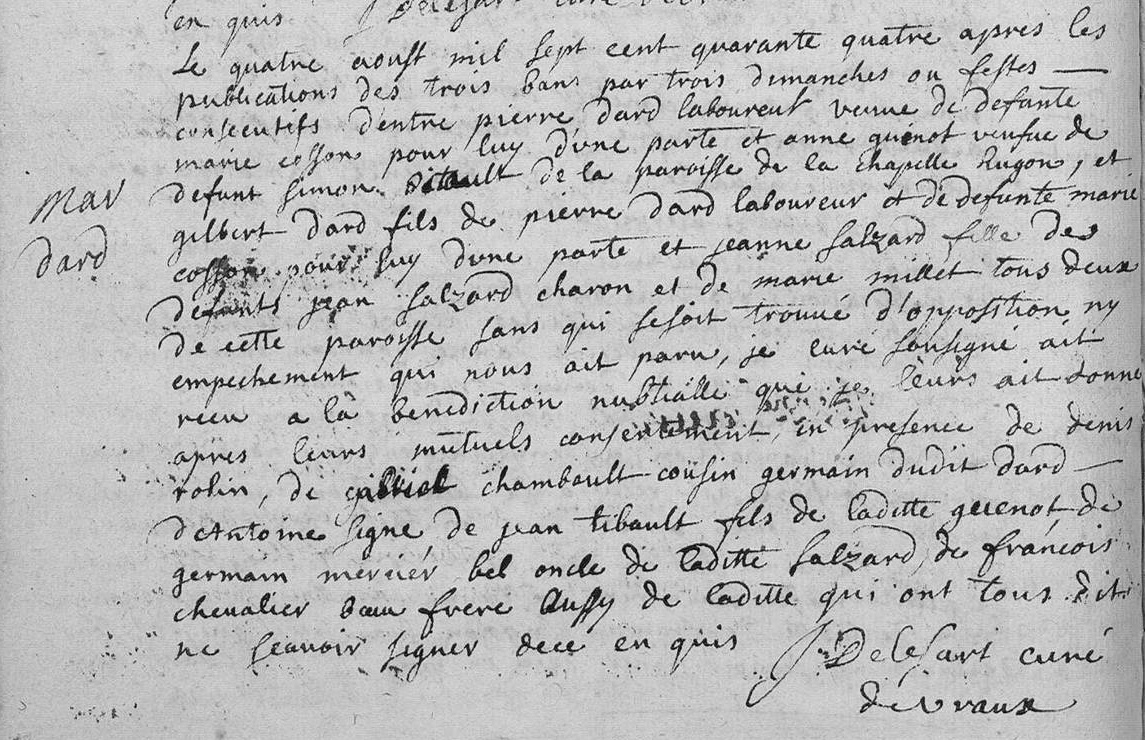 en quis Delesart curé
Le quatre aoust mil sept cent quarante quatre apres les
publications des trois bans par trois dimanches ou festes
consecutifs dentre pierre dard laboureur veuve de defante
marie cosson pour luy dune parte et anne quenot veufue de
defunt simon de la paroisse de la chapelle hugon, et
mar
gilbert dard fils de pierre dard laboureur et de defunte marie
dard
cosson pour luy dune parte et jeanne salzard fille de
defunts jean salzard charon et de marie millet tous deux
de cette paroisse sans qui sesoit trouvé d'opposition ny
empechement qui nous ait paru, je curé sousigné ait
receu a la benediction nubtialle qui je leurs ait donné
apres leurs mutuels consentement, en presence de denis
robin, de gilbert chambault cousin germain dudit dard
dAntoine signe de jean tibault fils de laditte quenot de
germain mercier bel oncle de laditte salzard, de françois
chevalier beau frere aussy de laditte qui ont tous dit
ne scavoir signer dece en quis Delesart curé
de vraux